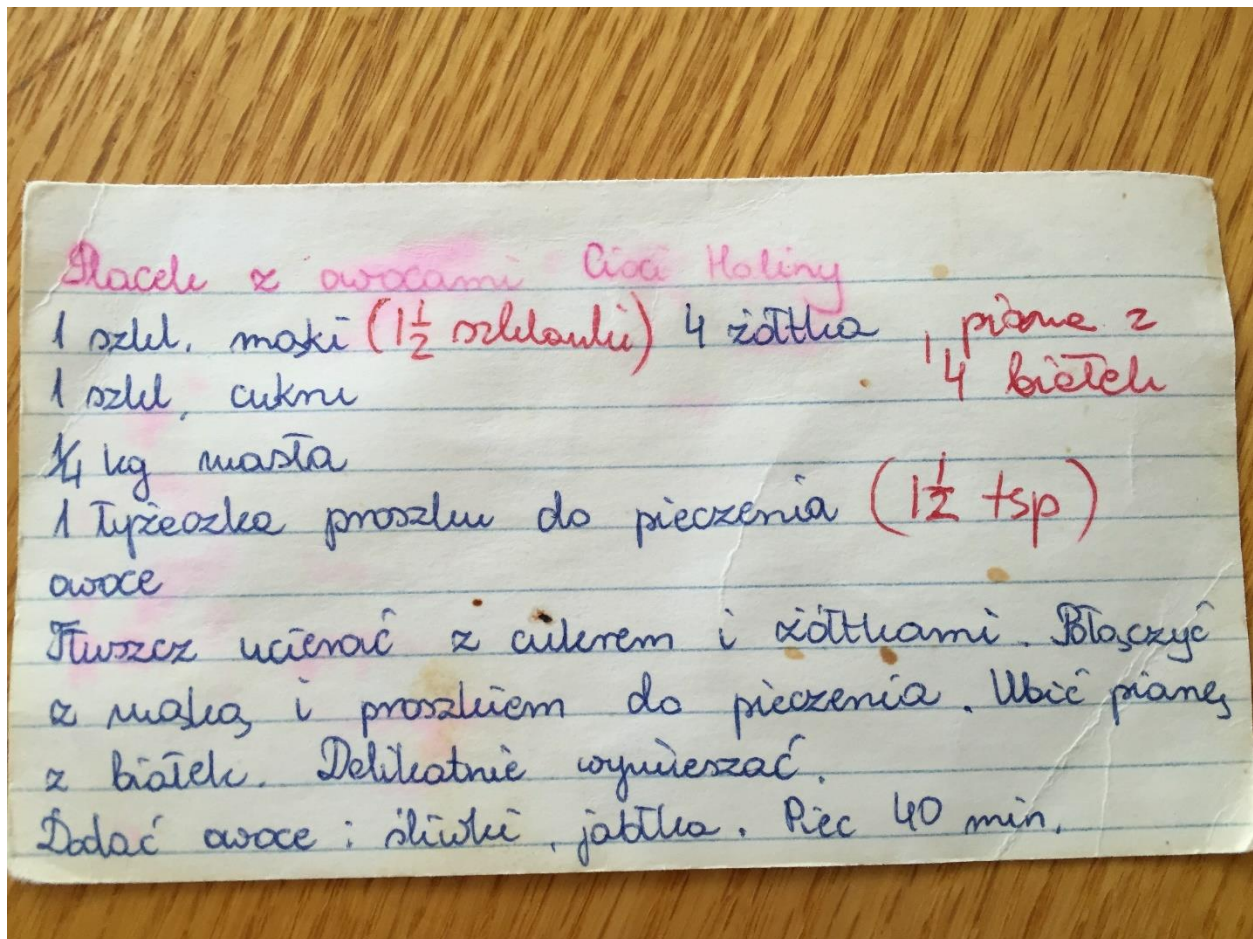 Placek z owocami Cioci Haliny
1 szkl. mąki (1 1/2 szklanki) 4 żółtka , piana z
1 szkl. cukru 4 białek
1/4 kg masła
1 łyżeczka proszku do pieczenia (1 1/2 tsp)
owoce
Tłuszcz ucierać z cukrem i żółtkami. Połączyć
z mąką i proszkiem do pieczenia. Ubić pianę
z białek. Delikatnie wymieszać.
Dodać owoce: śliwki, jabłka. Piec 40 min.